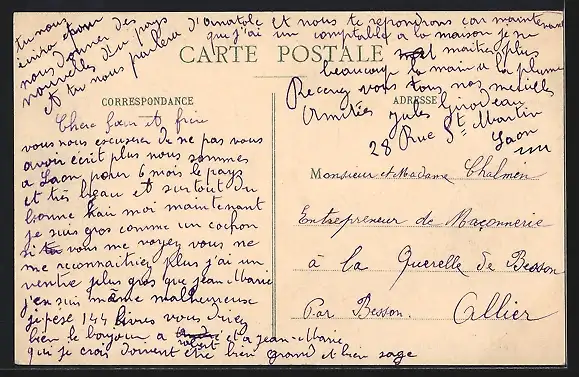 CARTE POSTALE
CORRESPONDANCE
ADRESSE
Chere Sœur et frère
vous nous excuserer de ne pas vous
avoir écrit plus nous sommes
a Laon pour 6 mois le pays
et très beau et surtout du
bonne hair moi maintenant
je suis gros comme un cochon
si vous me voyez vous ne
me reconnaitriez plus j'ai un
ventre plus gros que jean Marie
j'en suis même malheureuse
je pese 144 livres vous direz
bien le bonjour a robert et a jean Marie
qui je crois doivent etre bien grand et bien sage
tu nous
écrira pour
nous donner des
nouvelles du pays
et tu nous parlera d'Anatole et nous te repondrons car maintenant
que j'ai un comptable a la maison je ne
met maitrai plus
beaucoup la main de la plume
Recevez vous tous nos meilleures
Amitiés jules Girodeau
28 Rue St Martin
Laon
Monsieur et Madame Chalmin
Entrepreneur de Maçonnerie
à la Querelle de Besson
Par Besson. Allier